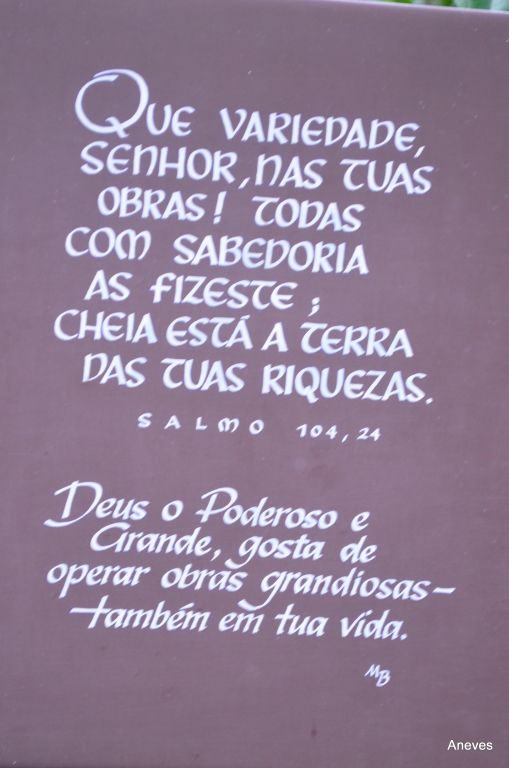 QUE VARIEDADE,
SENHOR, NAS TUAS
OBRAS! TODAS
COM SABEDORIA
AS FIZESTE;
CHEIA ESTÁ A TERRA
DAS TUAS RIQUEZAS.
SALMO 104,24
Deus o Poderoso e
Grande, gosta de
operar obras grandiosas—
também em tua vida.
MB
Aneves